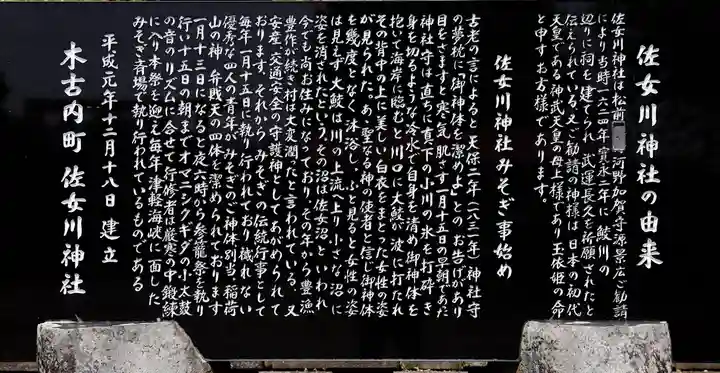 佐女川神社の由来
佐女川神社は松前 河野加賀守源景広ご勧請
により当時一六二四年寛永二年に鮫川の
辺りに祠を建てられ武運長久を祈願されたと
伝えられている。又ご勧請の神様は日本の初代
天皇である神武天皇の母上様であり玉依姫の命
と申すお方様であります。
佐女川神社みそぎ事始め
古老の言によると天保二年(一八三一年)神社守
の夢枕に「御神体を潔めよ」とのお告げがあり
目をさますと寒気肌さす一月十五日の早朝であた
神社守は直ちに真下の小川の氷を打砕き
身を切るような冷水で自身を清め御神体を
抱いて海岸に臨むと川口に大鮫が波に打たれ
その背中の上に美しい白衣をまとった女性の姿
が見られた。あゝ聖なる神の使者と信じ御神体
を幾度となく沐浴し、ふと見ると女性の姿
は見えず大鮫は川の上流(上り小さな沼に
姿を消されたという。その沼は佐女沼といわれ
今でも尚お住みになっており、その年から豊漁
豊作が続き村は大変潤たと言われている。又
安産、交通安全の守護神としてあがめられて
おります。それからみそぎの伝統行事として
毎年一月十五日に執り行われており穢れない
優秀な四人の青年がみそぎのご神体別当、稲荷
山の神、弁財天の四体を潔められております
一月十三日になると夜六時から参籠祭を執り
行い十五日の朝までオマニシクギダの小太鼓
の音のリズムに合せて行修者は厳寒の中鍛錬
に入り本祭を迎え毎年津軽海峡に面した
みそぎ斎場で執り行われているものである
平成元年十二月十八日 建立
木古内町 佐女川神社